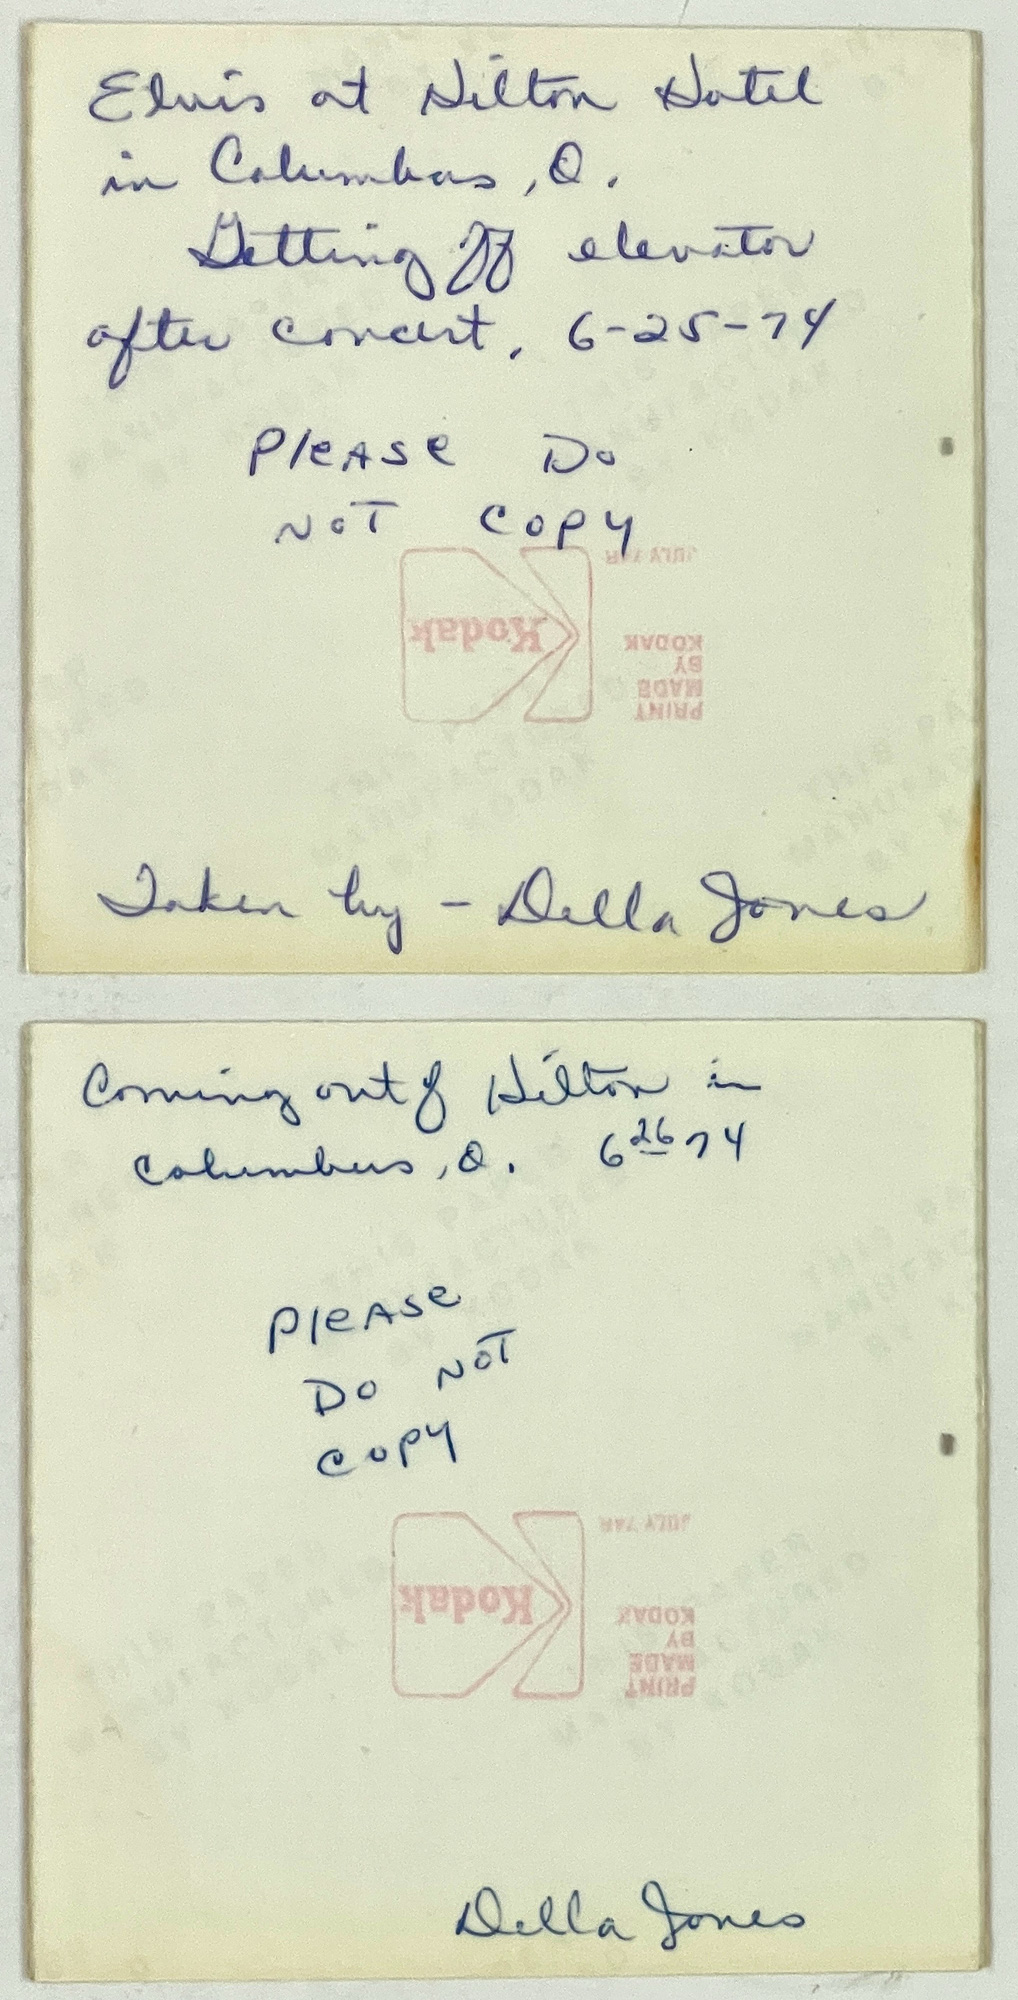 Elvis at Hilton Hotel
in Columbus, O.
Getting off elevator
after concert, 6-25-74
PleASe Do
NOT COPY
JULY 74R
Kodak
PRINT
MADE
BY
KODAK
Taken by - Della Jones
Coming out of Hilton in
Columbus, O. 6 26 74
PleASe
DO NOT
COPY
JULY 74R
Kodak
PRINT
MADE
BY
KODAK
Della Jones